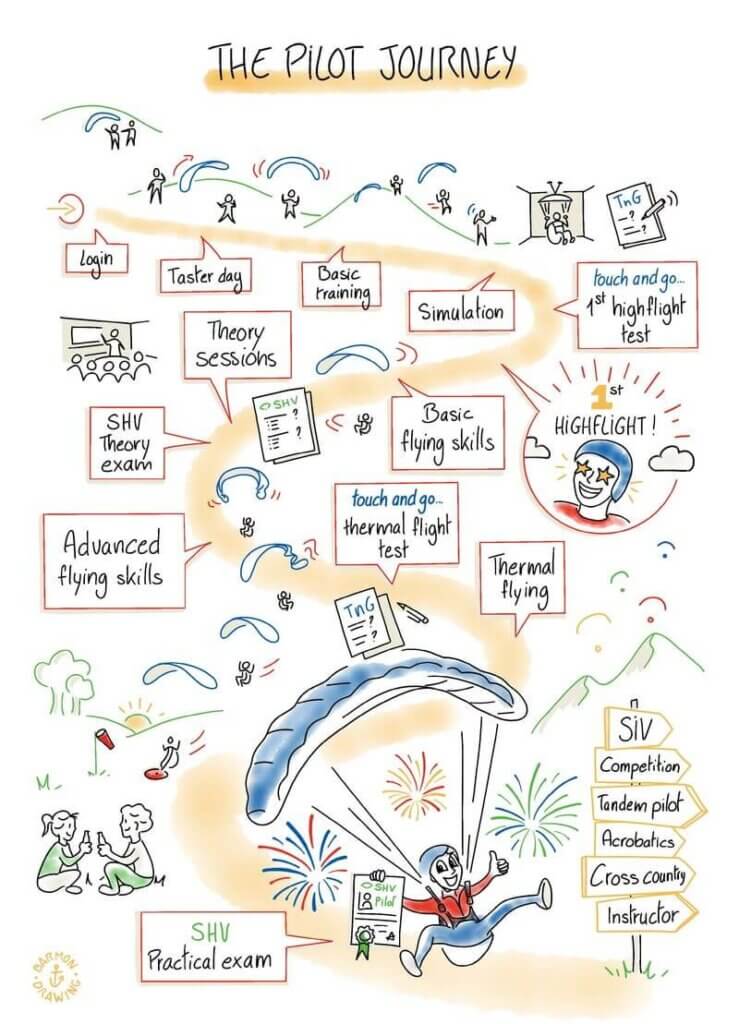 THE PILOT JOURNEY
Login
Taster day
Basic
training
Simulation
TnG
?
?
touch and go...
1st highflight
test
1st
HIGHFLIGHT !
Basic
flying skills
Theory
sessions
SHV
?
?
SHV
Theory
exam
Advanced
flying skills
touch and go...
thermal flight
test
TnG
?
?
Thermal
flying
SIV
Competition
Tandem pilot
Acrobatics
Cross country
Instructor
SHV
Pilot
SHV
Practical exam
BARMON
DRAWING